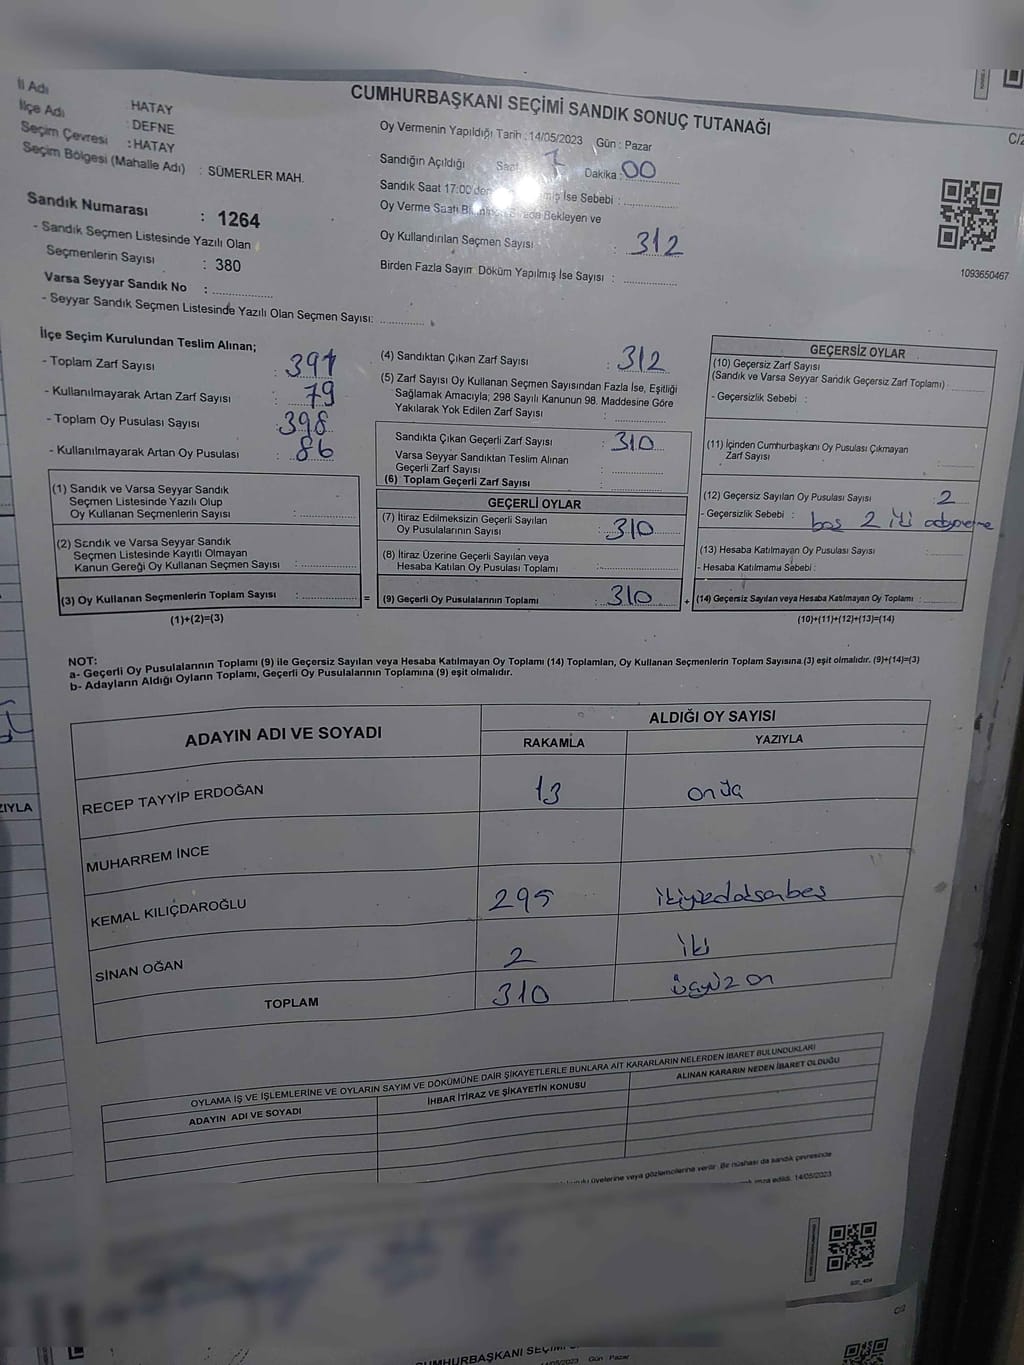 İl Adı HATAY
İlçe Adı : DEFNE
Seçim Çevresi : HATAY
Seçim Bölgesi (Mahalle Adı) : SÜMERLER MAH.
CUMHURBAŞKANI SEÇİMİ SANDIK SONUÇ TUTANAĞI
Oy Vermenin Yapıldığı Tarih : 14/05/2023 Gün : Pazar
Sandığın Açıldığı Saat 7 Dakika : 00
Sandık Saat 17:00'den İse Sebebi :
Oy Verme Saati Bekleyen ve
Oy Kullandırılan Seçmen Sayısı : 312
Birden Fazla Sayım Döküm Yapılmış İse Sayısı :
C/2
1093650467
Sandık Numarası : 1264
- Sandık Seçmen Listesinde Yazılı Olan
Seçmenlerin Sayısı : 380
Varsa Seyyar Sandık No :
- Seyyar Sandık Seçmen Listesinde Yazılı Olan Seçmen Sayısı:
İlçe Seçim Kurulundan Teslim Alınan;
- Toplam Zarf Sayısı : 391
- Kullanılmayarak Artan Zarf Sayısı : 79
- Toplam Oy Pusulası Sayısı : 398
- Kullanılmayarak Artan Oy Pusulası : 86
(1) Sandık ve Varsa Seyyar Sandık
Seçmen Listesinde Yazılı Olup
Oy Kullanan Seçmenlerin Sayısı :
(2) Sandık ve Varsa Seyyar Sandık
Seçmen Listesinde Kayıtlı Olmayan
Kanun Gereği Oy Kullanan Seçmen Sayısı :
(3) Oy Kullanan Seçmenlerin Toplam Sayısı : =
(1)+(2)=(3)
(4) Sandıktan Çıkan Zarf Sayısı : 312
(5) Zarf Sayısı Oy Kullanan Seçmen Sayısından Fazla İse, Eşitliği
Sağlamak Amacıyla; 298 Sayılı Kanunun 98. Maddesine Göre
Yakılarak Yok Edilen Zarf Sayısı :
Sandıkta Çıkan Geçerli Zarf Sayısı : 310
Varsa Seyyar Sandıktan Teslim Alınan
Geçerli Zarf Sayısı :
(6) Toplam Geçerli Zarf Sayısı :
GEÇERLİ OYLAR
(7) İtiraz Edilmeksizin Geçerli Sayılan
Oy Pusulalarının Sayısı : 310
(8) İtiraz Üzerine Geçerli Sayılan veya
Hesaba Katılan Oy Pusulası Toplamı :
(9) Geçerli Oy Pusulalarının Toplamı : 310 +
GEÇERSİZ OYLAR
(10) Geçersiz Zarf Sayısı
(Sandık ve Varsa Seyyar Sandık Geçersiz Zarf Toplamı)
- Geçersizlik Sebebi :
(11) İçinden Cumhurbaşkanı Oy Pusulası Çıkmayan
Zarf Sayısı :
(12) Geçersiz Sayılan Oy Pusulası Sayısı : 2
- Geçersizlik Sebebi : boş 2 iki
(13) Hesaba Katılmayan Oy Pusulası Sayısı :
- Hesaba Katılmama Sebebi :
(14) Geçersiz Sayılan veya Hesaba Katılmayan Oy Toplamı :
(10)+(11)+(12)+(13)=(14)
NOT:
a- Geçerli Oy Pusulalarının Toplamı (9) ile Geçersiz Sayılan veya Hesaba Katılmayan Oy Toplamı (14) Toplamları, Oy Kullanan Seçmenlerin Toplam Sayısına (3) eşit olmalıdır. (9)+(14)=(3)
b- Adayların Aldığı Oyların Toplamı, Geçerli Oy Pusulalarının Toplamına (9) eşit olmalıdır.
ADAYIN ADI VE SOYADI
ALDIĞI OY SAYISI
RAKAMLA YAZIYLA
RECEP TAYYİP ERDOĞAN 13
MUHARREM İNCE
KEMAL KILIÇDAROĞLU 295 ikiyüzdoksanbeş
SİNAN OĞAN 2 iki
TOPLAM 310 üçyüz on
ZIYLA
OYLAMA İŞ VE İŞLEMLERİNE VE OYLARIN SAYIM VE DÖKÜMÜNE DAİR ŞİKAYETLERLE BUNLARA AİT KARARLARIN NELERDEN İBARET BULUNDUKLARI
ADAYIN ADI VE SOYADI İHBAR İTİRAZ VE ŞİKAYETİN KONUSU ALINAN KARARIN NEDEN İBARET OLDUĞU
üyelerine veya gözlemcilerine verilir. Bir nüshası da sandık çevresinde
imza edildi. 14/05/2023
C/2
CUMHURBAŞKANI SEÇİMİ
14/05/2023 Gün : Pazar